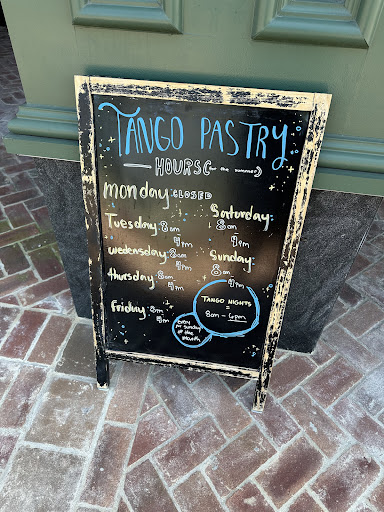 TANGO PASTRY
HOURS (for the summer)
monday: CLOSED
Tuesday: 8am
4pm
wedensday: 8am
4pm
thursday: 8am
4pm
friday: 8am
4pm
Saturday:
8am
4pm
Sunday:
8am
4pm
TANGO NIGHTS
=
8am - 6pm
every
Sunday
of the
month